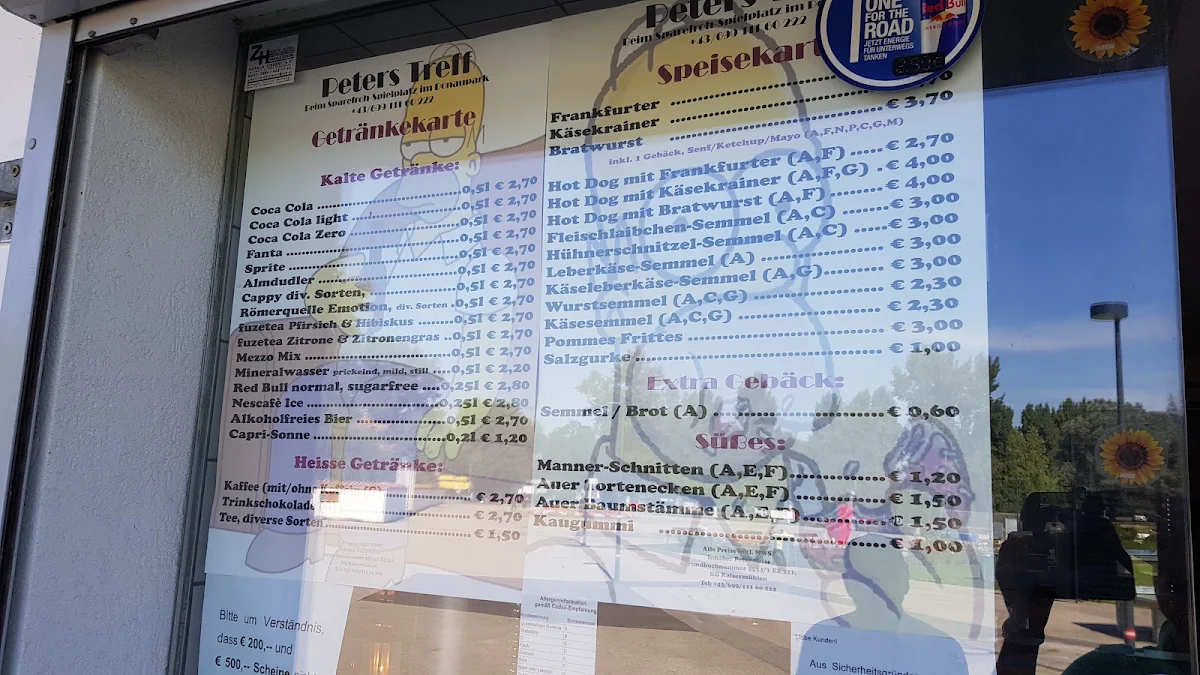 Peters Treff
Beim Sparefroh-Spielplatz im Donaupark
+43/699 111 60 222
Getränkekarte
Kalte Getränke:
Coca Cola 0,5l € 2,70
Coca Cola light 0,5l € 2,70
Coca Cola Zero 0,5l € 2,70
Fanta 0,5l € 2,70
Sprite 0,5l € 2,70
Almdudler 0,5l € 2,70
Cappy div. Sorten, 0,5l € 2,70
Römerquelle Emotion, div. Sorten 0,5l € 2,70
fuzetea Pfirsich & Hibiskus 0,5l € 2,70
fuzetea Zitrone & Zitronengras 0,5l € 2,70
Mezzo Mix 0,5l € 2,70
Mineralwasser prickelnd, mild, still 0,5l € 2,20
Red Bull normal, sugarfree 0,25l € 2,80
Nescafè Ice 0,25l € 2,80
Alkoholfreies Bier 0,5l € 2,70
Capri-Sonne 0,2l € 1,20
Heisse Getränke:
Kaffee (mit/ohne € 2,70
Trinkschokolade € 2,70
Tee, diverse Sorten € 1,50
Bitte um Verständnis,
dass € 200,-- und
€ 500,-- Scheine
Peters Treff
Beim Sparefroh-Spielplatz im
+43/699 111 60 222
Speisekarte
Frankfurter
Käsekrainer
Bratwurst € 3,70
inkl. 1 Gebäck, Senf/Ketchup/Mayo (A,F,N,P,C,G,M)
Hot Dog mit Frankfurter (A,F) € 2,70
Hot Dog mit Käsekrainer (A,F,G) € 4,00
Hot Dog mit Bratwurst (A,F) € 4,00
Fleischlaibchen-Semmel (A,C) € 3,00
Hühnerschnitzel-Semmel (A,C) € 3,00
Leberkäse-Semmel (A) € 3,00
Käseleberkäse-Semmel (A,G) € 3,00
Wurstsemmel (A,C,G) € 2,30
Käsesemmel (A,C,G) € 2,30
Pommes Frittes € 3,00
Salzgurke € 1,00
Extra Gebäck:
Semmel / Brot (A) € 0,60
Süßes:
Manner-Schnitten (A,E,F) € 1,20
Auer Tortenecken (A,E,F) € 1,50
Auer Baumstämme (A,E,F) € 1,50
Kaugummi € 1,00
Alle Preise inkl. MWSt
KG Kaisermühlen
Tel: +43/699/111 60 222
Allergeninformation
gemäß Codex-Empfehlung
Liebe Kunden!
Aus Sicherheitsgründen
ONE
FOR THE
ROAD
JETZT ENERGIE
FÜR UNTERWEGS
TANKEN
Red Bull